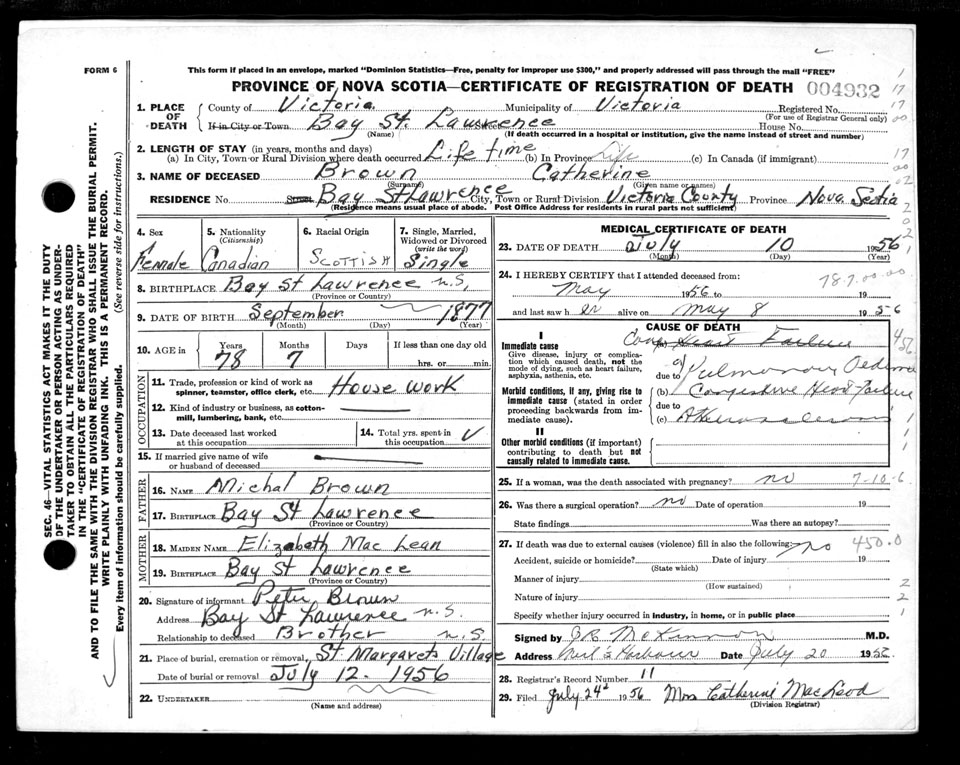 FORM 6
This form if placed in an envelope, marked “Dominion Statistics—Free, penalty for improper use $300,” and properly addressed will pass through the mail “FREE”
PROVINCE OF NOVA SCOTIA—CERTIFICATE OF REGISTRATION OF DEATH 004932
1. PLACE OF DEATH { County of Victoria Municipality of Victoria Registered No.
(For use of Registrar General only)
If in City or Town Bay St. Lawrence House No.
(Name) (If death occurred in a hospital or institution, give the name instead of street and number)
2. LENGTH OF STAY (in years, months and days)
(a) In City, Town or Rural Division where death occurred Life time (b) In Province Life (c) In Canada (if immigrant)
3. NAME OF DECEASED Brown Catherine
(Surname) (Given name or names)
RESIDENCE No. Street Bay St Lawrence City, Town or Rural Division Victoria County Province Nova Scotia
(Residence means usual place of abode. Post Office Address for residents in rural parts not sufficient)
4. Sex Female
5. Nationality (Citizenship) Canadian
6. Racial Origin SCOTTISH
7. Single, Married, Widowed or Divorced (write the word) Single
8. BIRTHPLACE Bay St Lawrence N.S.
(Province or Country)
9. DATE OF BIRTH September 1877
(Month) (Day) (Year)
10. AGE in Years 78 Months 7 Days If less than one day old
hrs. or min.
OCCUPATION
11. Trade, profession or kind of work as spinner, teamster, office clerk, etc. House work
12. Kind of industry or business, as cotton-mill, lumbering, bank, etc.
13. Date deceased last worked at this occupation
14. Total yrs. spent in this occupation
15. If married give name of wife or husband of deceased
FATHER
16. NAME Michal Brown
17. BIRTHPLACE Bay St Lawrence
(Province or Country)
MOTHER
18. MAIDEN NAME Elizabath Mac Lean
19. BIRTHPLACE Bay St Lawrence
(Province or Country)
20. Signature of informant Peter Brown
Address Bay St Lawrence N.S.
Relationship to deceased Brother N.S.
21. Place of burial, cremation or removal, St Margarets Village
Date of burial or removal July 12. 1956
22. UNDERTAKER
(Name and address)
MEDICAL CERTIFICATE OF DEATH
23. DATE OF DEATH July 10 1956
(Month) (Day) (Year)
24. I HEREBY CERTIFY that I attended deceased from:
May 1956 to 19
and last saw her alive on May 8 1956
CAUSE OF DEATH
I
Immediate cause
Give disease, injury or complication which caused death, not the mode of dying, such as heart failure, asphyxia, asthenia, etc.
Cong Heart Failure
(a) Pulmonary Oedema
due to
Morbid conditions, if any, giving rise to immediate cause (stated in order proceeding backwards from immediate cause).
(b) Congestive Heart Failure
due to
(c) Atherosclerosis
II
Other morbid conditions (if important) contributing to death but not causally related to immediate cause.
25. If a woman, was the death associated with pregnancy? no 7-10-6
26. Was there a surgical operation? no Date of operation 19
State findings Was there an autopsy?
27. If death was due to external causes (violence) fill in also the following: no 450.0
Accident, suicide or homicide? Date of injury 19
(State which)
Manner of injury
(How sustained)
Nature of injury
Specify whether injury occurred in industry, in home, or in public place
Signed by M.D.
Address Neil's Harbour Date July 20 195
28. Registrar's Record No. 11
29. Filed July 24 1956 Mrs Catherine MacLeod
(Division Registrar)
SEC. 46—VITAL STATISTICS ACT MAKES IT THE DUTY
OF THE UNDERTAKER OR PERSON ACTING AS UNDER-
TAKER TO OBTAIN ALL THE PARTICULARS REQUIRED
IN THE “CERTIFICATE OF REGISTRATION OF DEATH”
AND TO FILE THE SAME WITH THE DIVISION REGISTRAR WHO SHALL ISSUE THE BURIAL PERMIT.
WRITE PLAINLY WITH UNFADING INK. THIS IS A PERMANENT RECORD.
Every item of information should be carefully supplied. (See reverse side for instructions.)